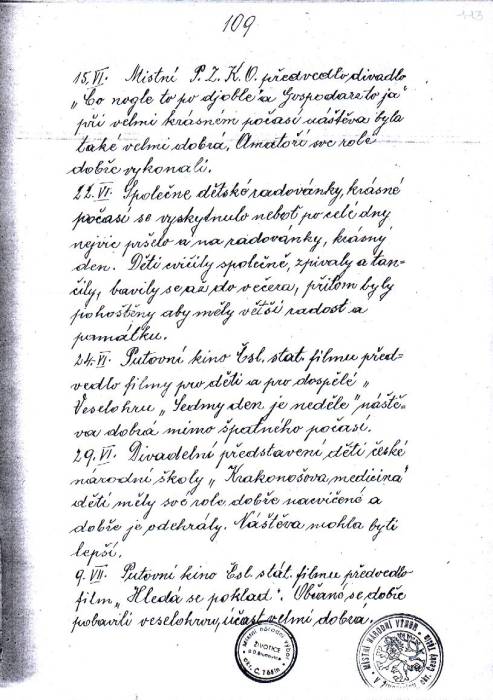 109
113
15.VI. Místní P.Z.K.O. předvedlo divadlo
„Co nogle to po djoble" a Gospodarz to ja"
při velmi krásném počasí náštěva byla
také velmi dobrá, Amatoři své role
dobře vykonali.
22.VI. Společne dětské radovánky, krásné
počasí se vyskytnulo neboť po celé dny
nejvic pršelo a na radovánky, krásný
den. Děti cvičily společně, zpivaly a tan-
čily, bavily se až do večera, přitom byly
pohoštěny aby měly větší radost a
památku.
24.VI. Putovní kino Čsl. stat. filmu před-
vedlo filmy pro děti a pro dospělé „
Veselohru „Sedmy den je neděle" náště-
va dobrá mimo špatného počasí.
29.VI. Divadelní představení dětí české
národní školy „Krakonošova medicina"
děti měly své role dobře nacvičené a
dobře je odehrály. Náštěva mohla byti
lepší.
9.VII. Putovní kino Čsl. stát. filmu předvedlo
film „Hledá se poklad". Občané se dobře
pobavili veselohrou, účast velmi dobrá.
Místní národní výbor
ŽIVOTICE
MÍSTNÍ NÁRODNÍ VÝBOR